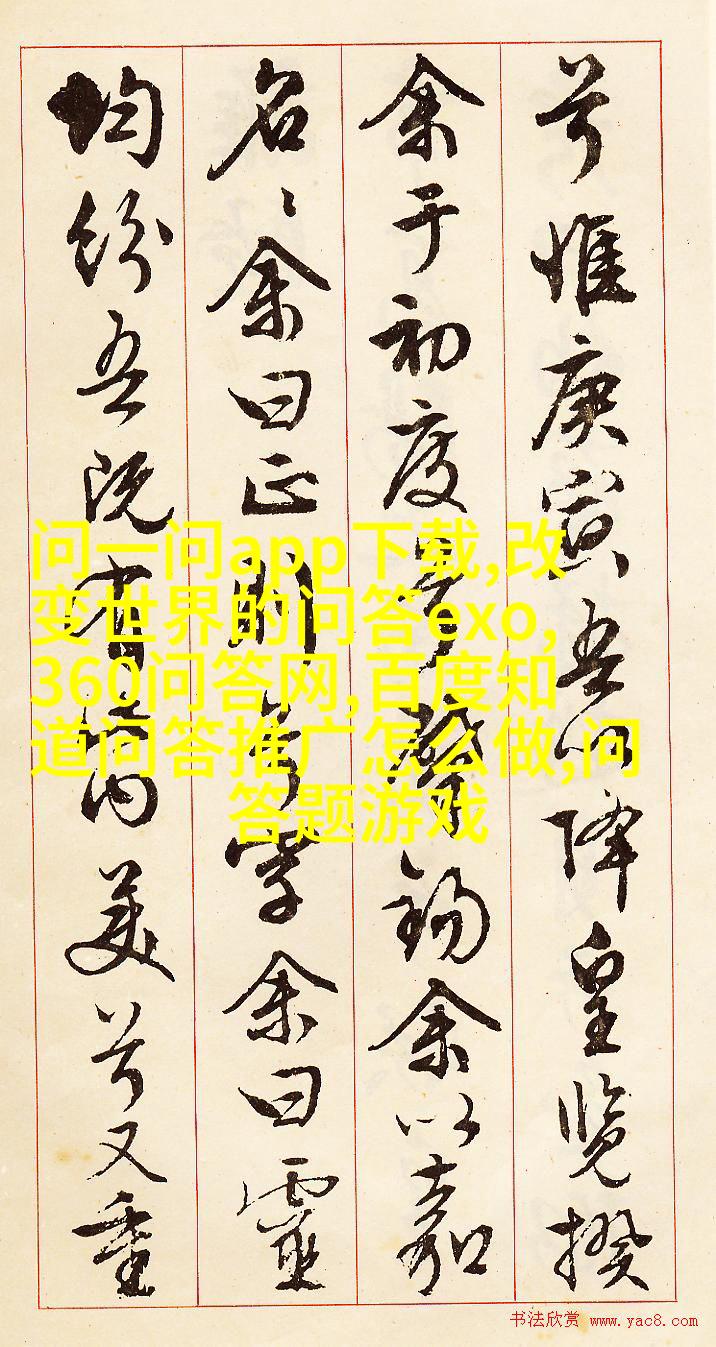 兮惟庚寅吾以降皇覽揆
余于初度兮肇錫余以嘉
名〻余曰正則兮字余曰靈
均紛吾既有此內美兮又重
问一问app下载,改
变世界的问答exo,
360问答网,百度知
道问答推广怎么做,问
答题游戏
书法欣赏 www.yac8.com